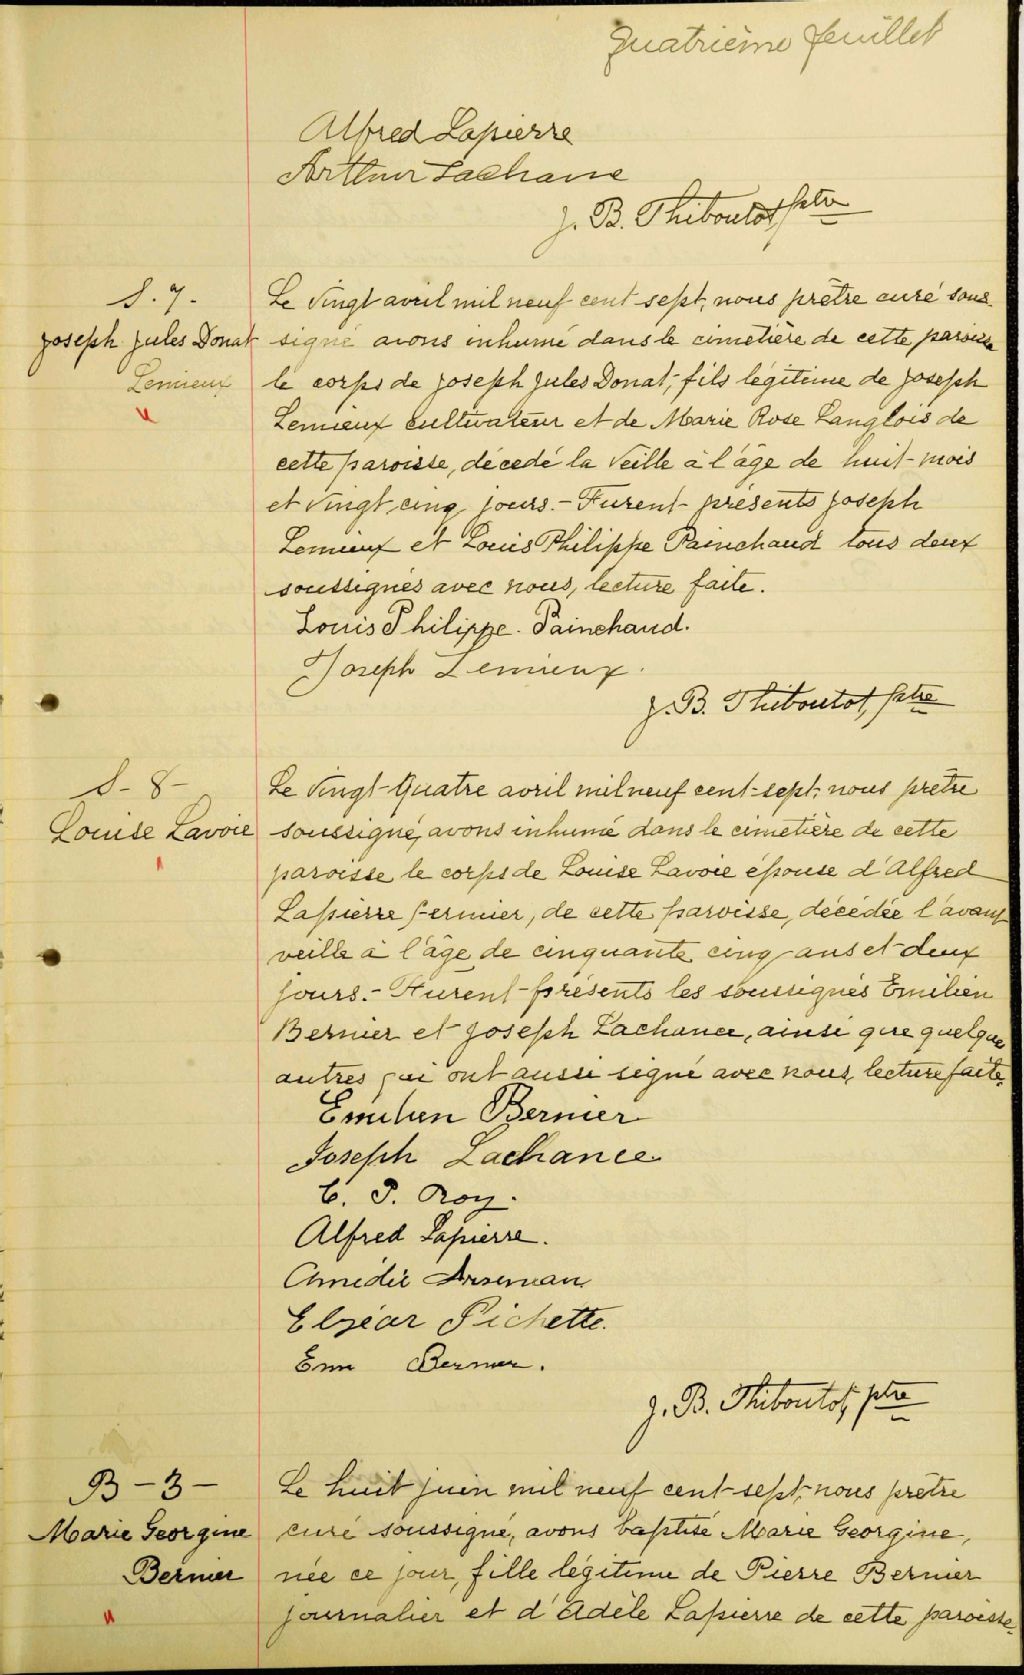 Quatrième feuillet
Alfred Lapierre
Arthur Lachance
J. B. Thiboutot, ptre
S. 7.
Joseph Jules Donat
Lemieux
Le vingt avril mil neuf cent sept, nous prêtre curé sous-
signé avons inhumé dans le cimetière de cette paroisse
le corps de Joseph Jules Donat, fils légitime de Joseph
Lemieux cultivateur et de Marie Rose Langlois de
cette paroisse, décédé la veille à l'âge de huit mois
et vingt cinq jours. - Furent présents Joseph
Lemieux et Louis Philippe Painchaud tous deux
soussignés avec nous, lecture faite.
Louis Philippe Painchaud.
Joseph Lemieux.
J. B. Thiboutot, ptre
S - 8 -
Louise Lavoie
Le vingt-quatre avril mil neuf cent-sept, nous prêtre
soussigné, avons inhumé dans le cimetière de cette
paroisse le corps de Louise Lavoie épouse d'Alfred
Lapierre fermier, de cette paroisse, décédée l'avant
veille à l'âge de cinquante cinq ans et deux
jours. - Furent présents les soussignés Emilien
Bernier et Joseph Lachance, ainsi que quelques
autres qui ont aussi signé avec nous, lecture faite.
Emilien Bernier
Joseph Lachance
P. Roy.
Alfred Lapierre.
Amédée Arseneau
Elzéar Pichette.
Bernier.
J. B. Thiboutot, ptre
B - 3 -
Marie Georgine
Bernier
Le huit juin mil neuf cent-sept, nous prêtre
curé soussigné, avons baptisé Marie Georgine,
née ce jour, fille légitime de Pierre Bernier
journalier et d'Adèle Lapierre de cette paroisse.